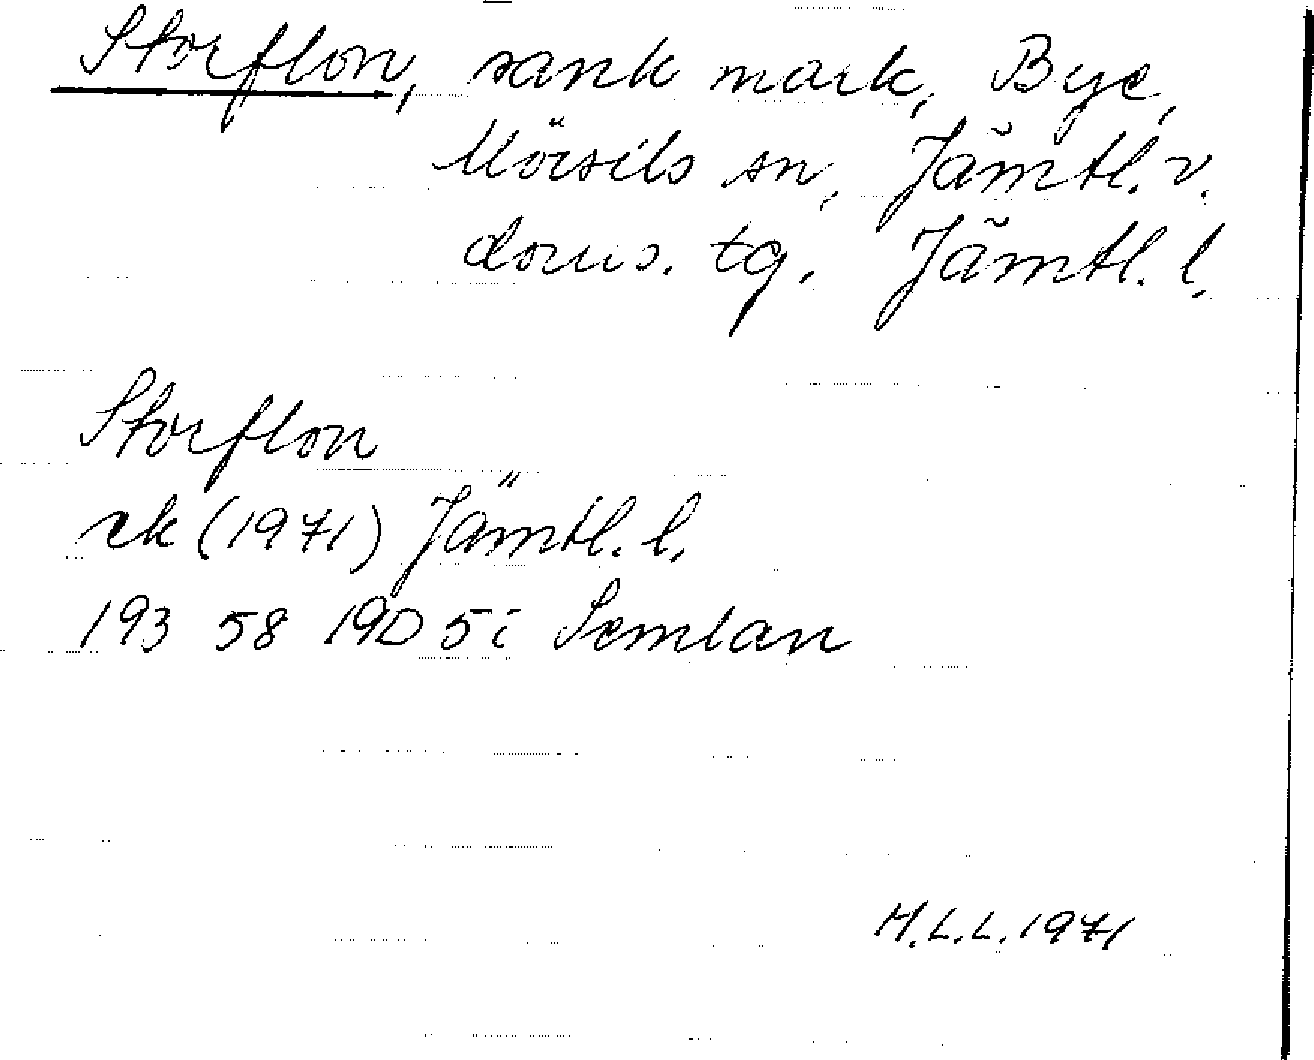 Storflon, sank mark, Bye,
Mörsils sn, Jämtl. v.
doms. tg. Jämtl. l.
Storflon
ek (1971) Jämtl. l.
193 58 19D 5i Semlan
M.L.L. 1971